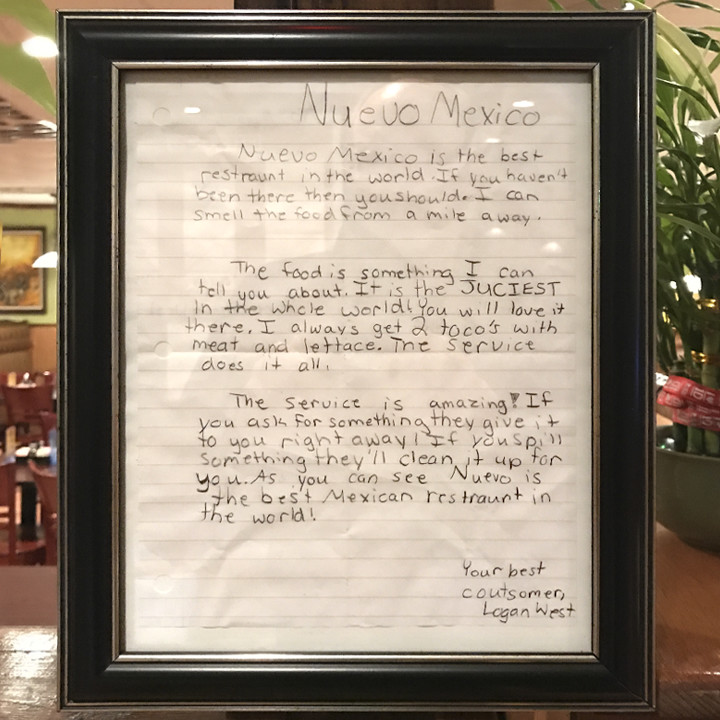 Nuevo Mexico
Nuevo Mexico is the best
restraunt in the world. If you haven't
been there then you should. I can
smell the food from a mile away.
The food is something I can
tell you about. It is the JUCIEST
in the whole world! You will love it
there. I always get 2 toco's with
meat and lettace. The service
does it all.
The service is amazing! If
you ask for something they give it
to you right away! If you spill
something they'll clean it up for
you. As you can see Nuevo is
the best Mexican restraunt in
the world!
Your best
coutsomer,
Logan West